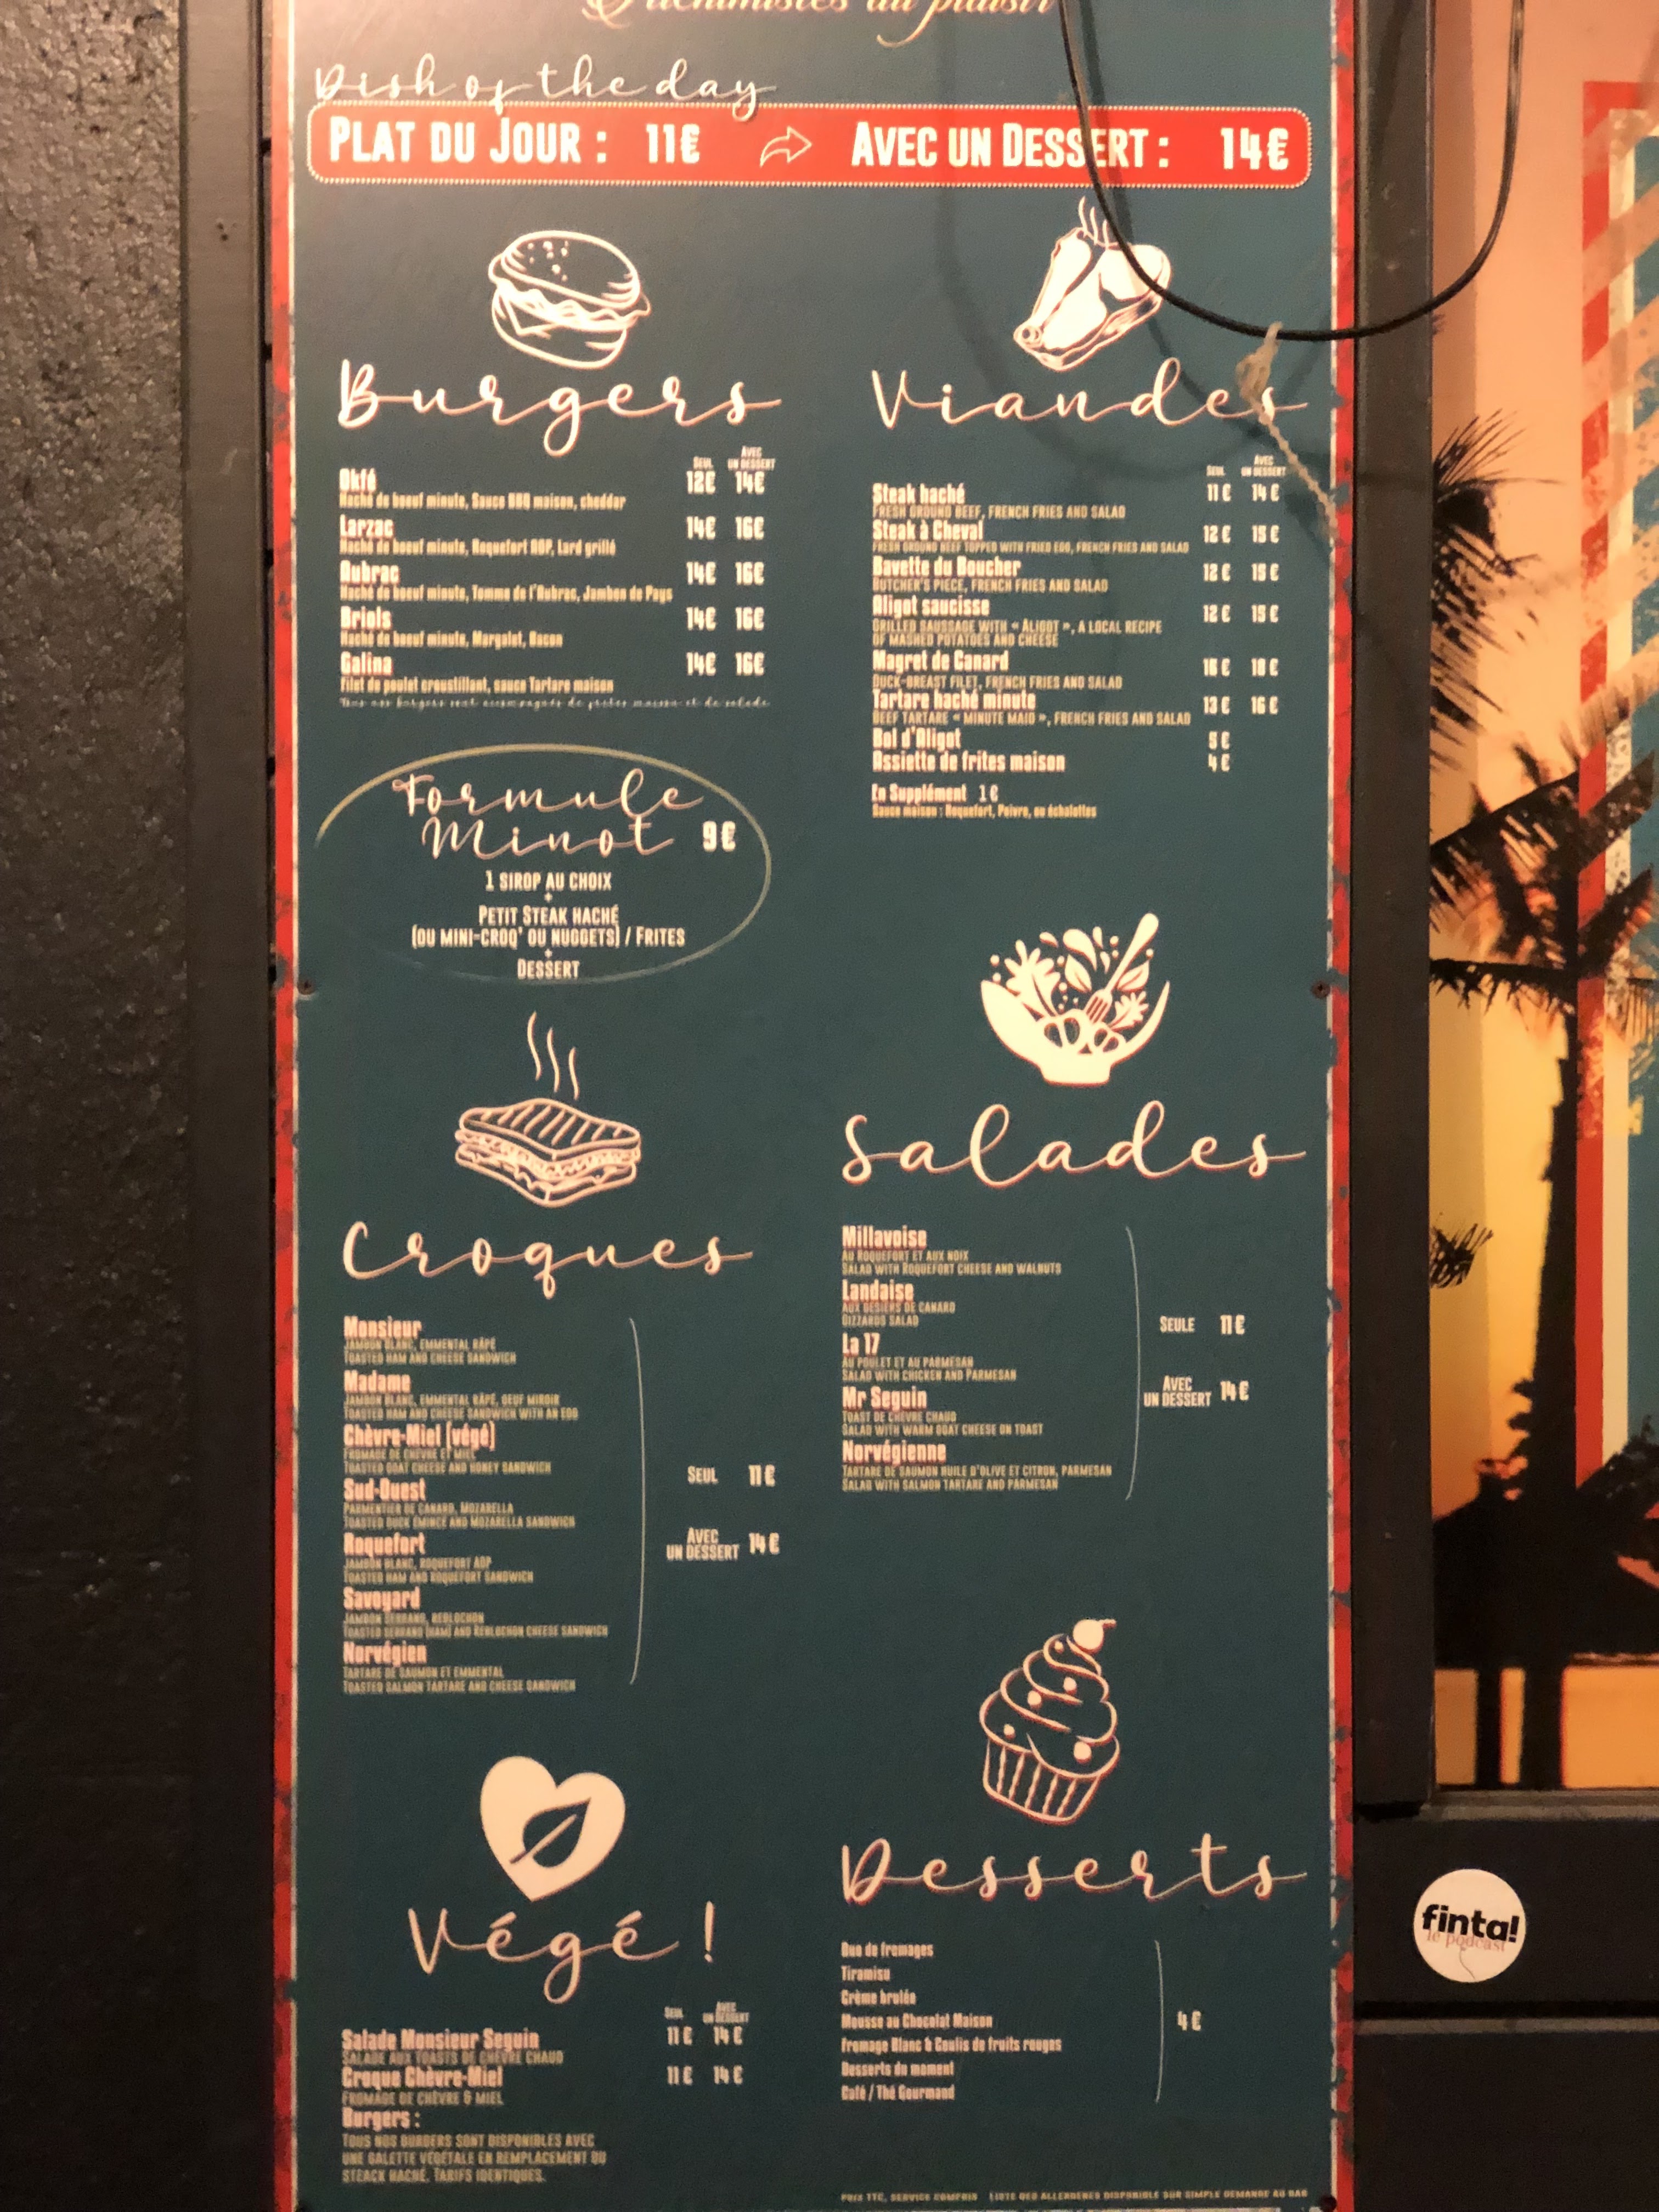 Dish of the day
PLAT DU JOUR : 11€ AVEC UN DESSERT : 14€
Burgers
SEUL AVEC UN DESSERT
Okfé 12€ 14€
Haché de boeuf minute, Sauce BBQ maison, cheddar
Larzac 14€ 16€
Haché de boeuf minute, Roquefort AOP, Lard grillé
Aubrac 14€ 16€
Haché de boeuf minute, Tomme de l'Aubrac, Jambon de Pays
Briols 14€ 16€
Haché de boeuf minute, Margalet, Bacon
Galina 14€ 16€
Filet de poulet croustillant, sauce Tartare maison
Tous nos burgers sont accompagnés de frites maison et de salade
Formule
Minot 9€
1 SIROP AU CHOIX
+
PETIT STEAK HACHÉ
(OU MINI-CROQ' OU NUGGETS) / FRITES
+
DESSERT
Croques
Monsieur
JAMBON BLANC, EMMENTAL RÂPÉ
TOASTED HAM AND CHEESE SANDWICH
Madame
JAMBON BLANC, EMMENTAL RÂPÉ, OEUF MIROIR
TOASTED HAM AND CHEESE SANDWICH WITH AN EGG
Chèvre-Miel (végé)
FROMAGE DE CHÈVRE ET MIEL
TOASTED GOAT CHEESE AND HONEY SANDWICH
Sud-Ouest
PARMENTIER DE CANARD, MOZARELLA
TOASTED DUCK ÉMINCÉ AND MOZARELLA SANDWICH
Roquefort
JAMBON BLANC, ROQUEFORT AOP
TOASTED HAM AND ROQUEFORT SANDWICH
Savoyard
JAMBON SERRANO, REBLOCHON
TOASTED SERRANO (HAM) AND REBLOCHON CHEESE SANDWICH
Norvégien
TARTARE DE SAUMON ET EMMENTAL
TOASTED SALMON TARTARE AND CHEESE SANDWICH
SEUL 11€
AVEC
UN DESSERT 14€
Végé !
SEUL AVEC UN DESSERT
Salade Monsieur Seguin 11€ 14€
SALADE AUX TOASTS DE CHÈVRE CHAUD
Croque Chèvre-Miel 11€ 14€
FROMAGE DE CHÈVRE & MIEL
Burgers :
TOUS NOS BURGERS SONT DISPONIBLES AVEC
UNE GALETTE VÉGÉTALE EN REMPLACEMENT DU
STEACK HACHÉ. TARIFS IDENTIQUES.
Viandes
SEUL AVEC UN DESSERT
Steak haché 11€ 14€
FRESH GROUND BEEF, FRENCH FRIES AND SALAD
Steak à Cheval 12€ 15€
FRESH GROUND BEEF TOPPED WITH FRIED EGG, FRENCH FRIES AND SALAD
Bavette du Boucher 12€ 15€
BUTCHER'S PIECE, FRENCH FRIES AND SALAD
Aligot saucisse 12€ 15€
GRILLED SAUSSAGE WITH « ALIGOT », A LOCAL RECIPE
OF MASHED POTATOES AND CHEESE
Magret de Canard
DUCK-BREAST FILET, FRENCH FRIES AND SALAD
Tartare haché minute 13€ 16€
BEEF TARTARE « MINUTE MAID », FRENCH FRIES AND SALAD
Bol d'Aligot 5€
Assiette de frites maison 4€
En Supplément 1€
Sauce maison : Roquefort, Poivre, ou échalottes
Salades
Millavoise
AU ROQUEFORT ET AUX NOIX
SALAD WITH ROQUEFORT CHEESE AND WALNUTS
Landaise
AUX GÉSIERS DE CANARD
GIZZARDS SALAD
La 17
AU POULET ET AU PARMESAN
SALAD WITH CHICKEN AND PARMESAN
Mr Seguin
TOAST DE CHÈVRE CHAUD
SALAD WITH WARM GOAT CHEESE ON TOAST
Norvégienne
TARTARE DE SAUMON HUILE D'OLIVE ET CITRON, PARMESAN
SALAD WITH SALMON TARTARE AND PARMESAN
SEULE 11€
AVEC
UN DESSERT 14€
Desserts
Duo de fromages
Tiramisu
Crème brulée
Mousse au Chocolat Maison
Fromage Blanc & Coulis de fruits rouges
Desserts du moment
Café / Thé Gourmand
4€
PRIX TTC, SERVICE COMPRIS LISTE DES ALLERGÈNES DISPONIBLE SUR SIMPLE DEMANDE AU BAR
finta!
le podcast